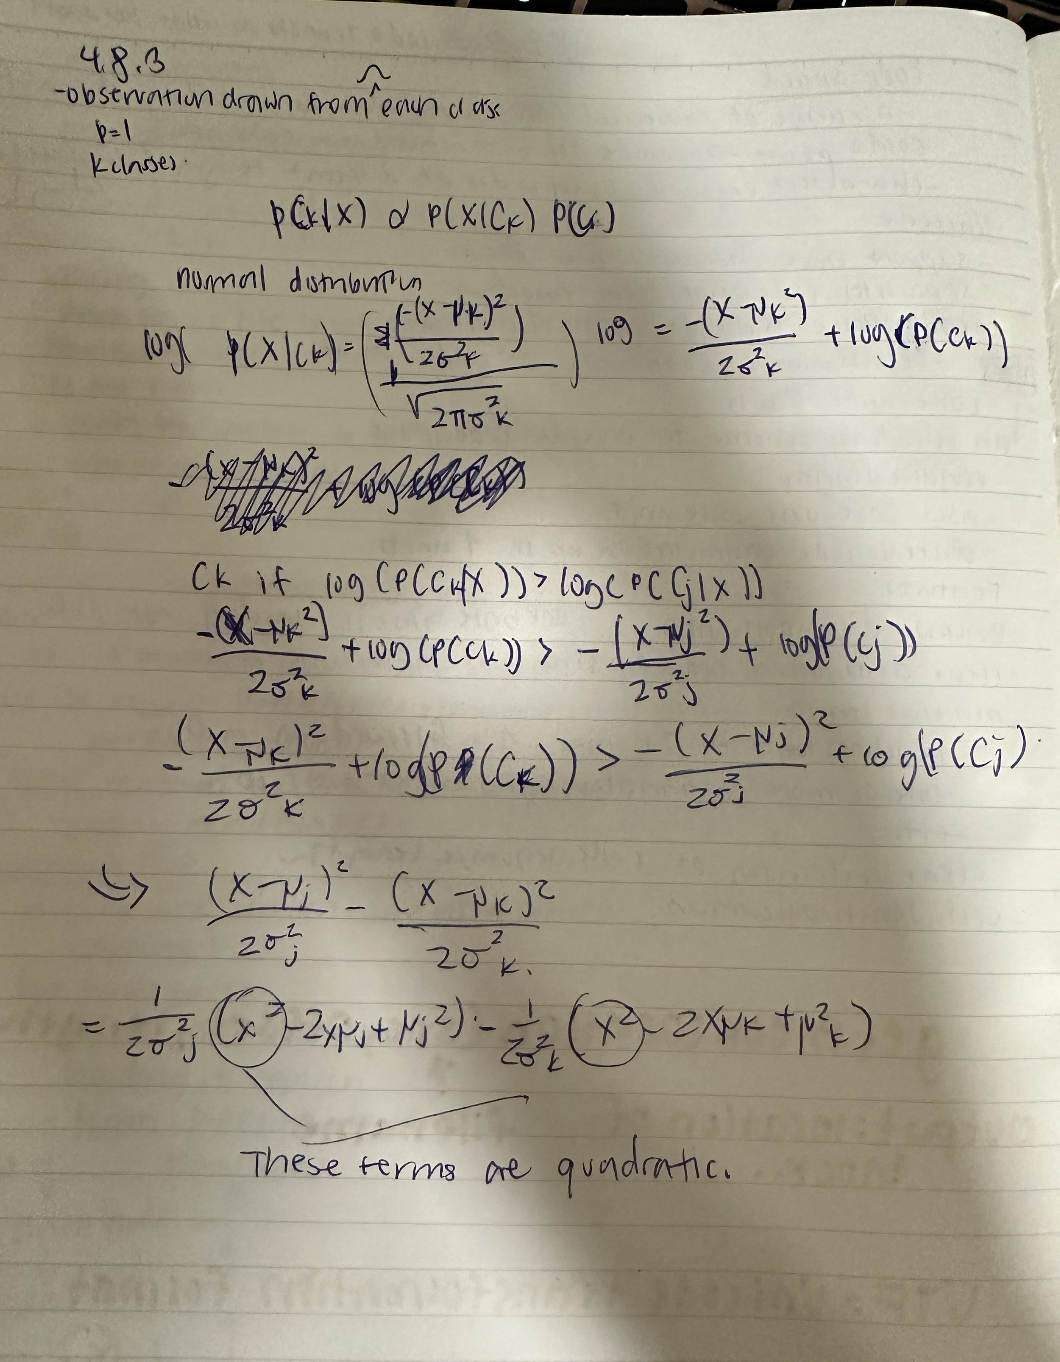 4.8.3
-observation drawn from ^ each class
p=1
k classes.
p(Ck|X) ∝ P(X|Ck) P(Ck)
normal distribution
log( p(X|Ck) = ( (-(X-μk)² / 2σ²k) / √2πσ²k ) log = -(X-μk²) / 2σ²k + log(P(Ck))
Ck if log(P(Ck|X)) > log(P(Cj|X))
-(X-μk²) / 2σ²k + log(P(Ck)) > -(X-μj²) / 2σ²j + log(P(Cj))
-(X-μk)² / 2σ²k + log(P(Ck)) > -(X-μj)² / 2σ²j + log(P(Cj)
(X-μj)² / 2σ²j - (X-μk)² / 2σ²k.
= 1 / 2σ²j (x²-2xμj+μj²) - 1 / 2σ²k (x²-2xμk+μ²k)
These terms are quadratic.